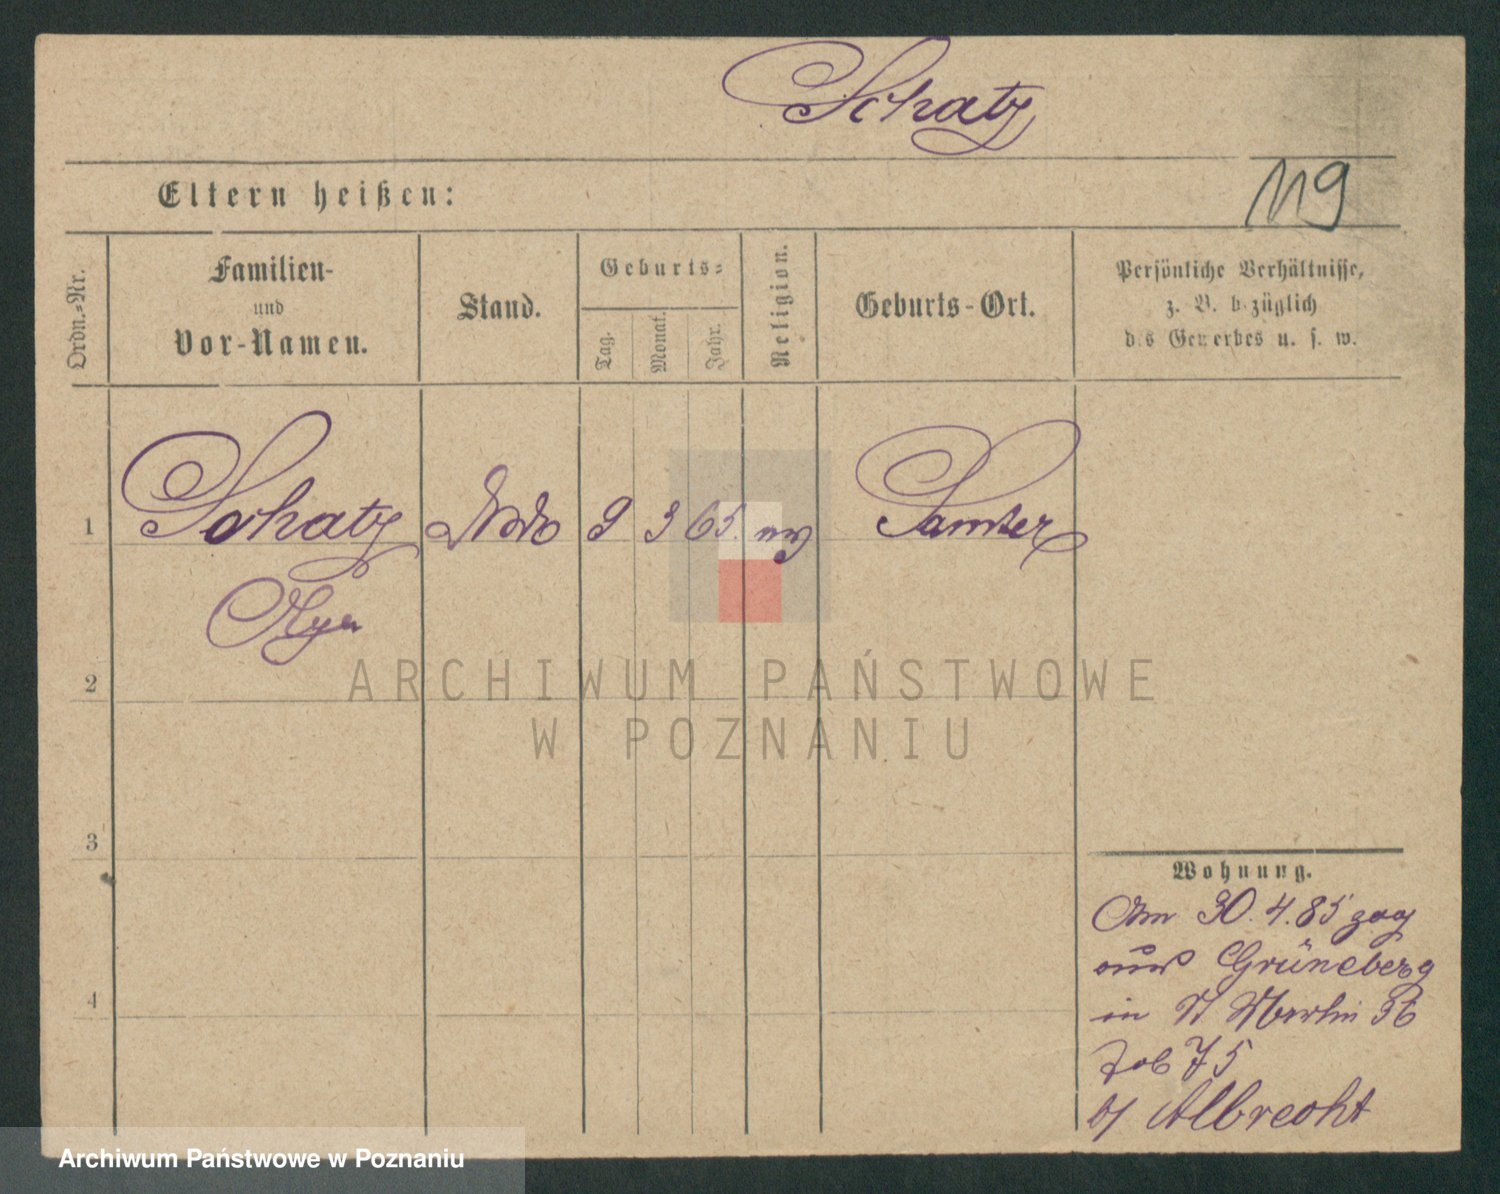 Schatz
119
Eltern heißen:
Ordn.-Nr.
Familien-
und
Vor-Namen.
Stand.
Geburts-
Tag.
Monat.
Jahr.
Religion.
Geburts-Ort.
Persönliche Verhältnisse,
z. B. bezüglich
des Gewerbes u. s. w.
1
Schatz
9 3 65.
Samter
2
ARCHIWUM PAŃSTWOWE
W POZNANIU
3
4
Wohnung.
Am 30. 4. 85 zog
aus Grüneberg
in
75
b/ Albrecht
Archiwum Państwowe w Poznaniu